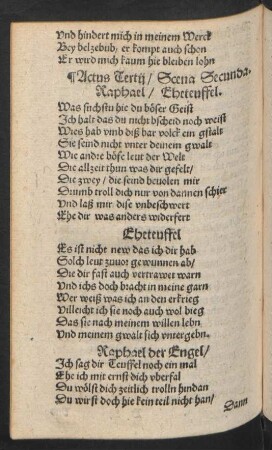 Vnd hindert mich in meinem Werck
Bey belzebub/ er kompt auch schon
Er wird mich kaum hie bleiben lohn
¶Actus Tertij/ Scena Secunda.
Raphael/ Eheteuffel.
Was suchstu hie du böser Geist
Ich halt das du nicht bscheid noch weist
Wies hab vmb diß bar volck ein gstalt
Sie seind nicht vnter deinem gwalt
Wie andre böse leut der Welt
Die allzeit thun was dir gefelt/
Die zwey/ die seind beuolen mir
Drumb troll dich nur von dannen schier
Vnd laß mir dise vnbeschwert
Ehe dir was anders widerfert
Eheteuffel
Es ist nicht new das ich dir hab
Solch leut zuuor gewunnen ab/
Die dir fast auch vertrawet warn
Vnd ichs doch bracht in meine garn
Wer weiß was ich an den erkrieg
Villeicht ich sie noch auch wol bieg
Das sie nach meinem willen lebn
Vnd meinem gwalt sich vntergebn.
Raphael der Engel/
Ich sag dir Teuffel noch ein mal
Ehe ich mit ernst dich vberfal
Du wölst dich zeitlich trolln hindan
Du wirst doch hie kein teil nicht han/
Dann